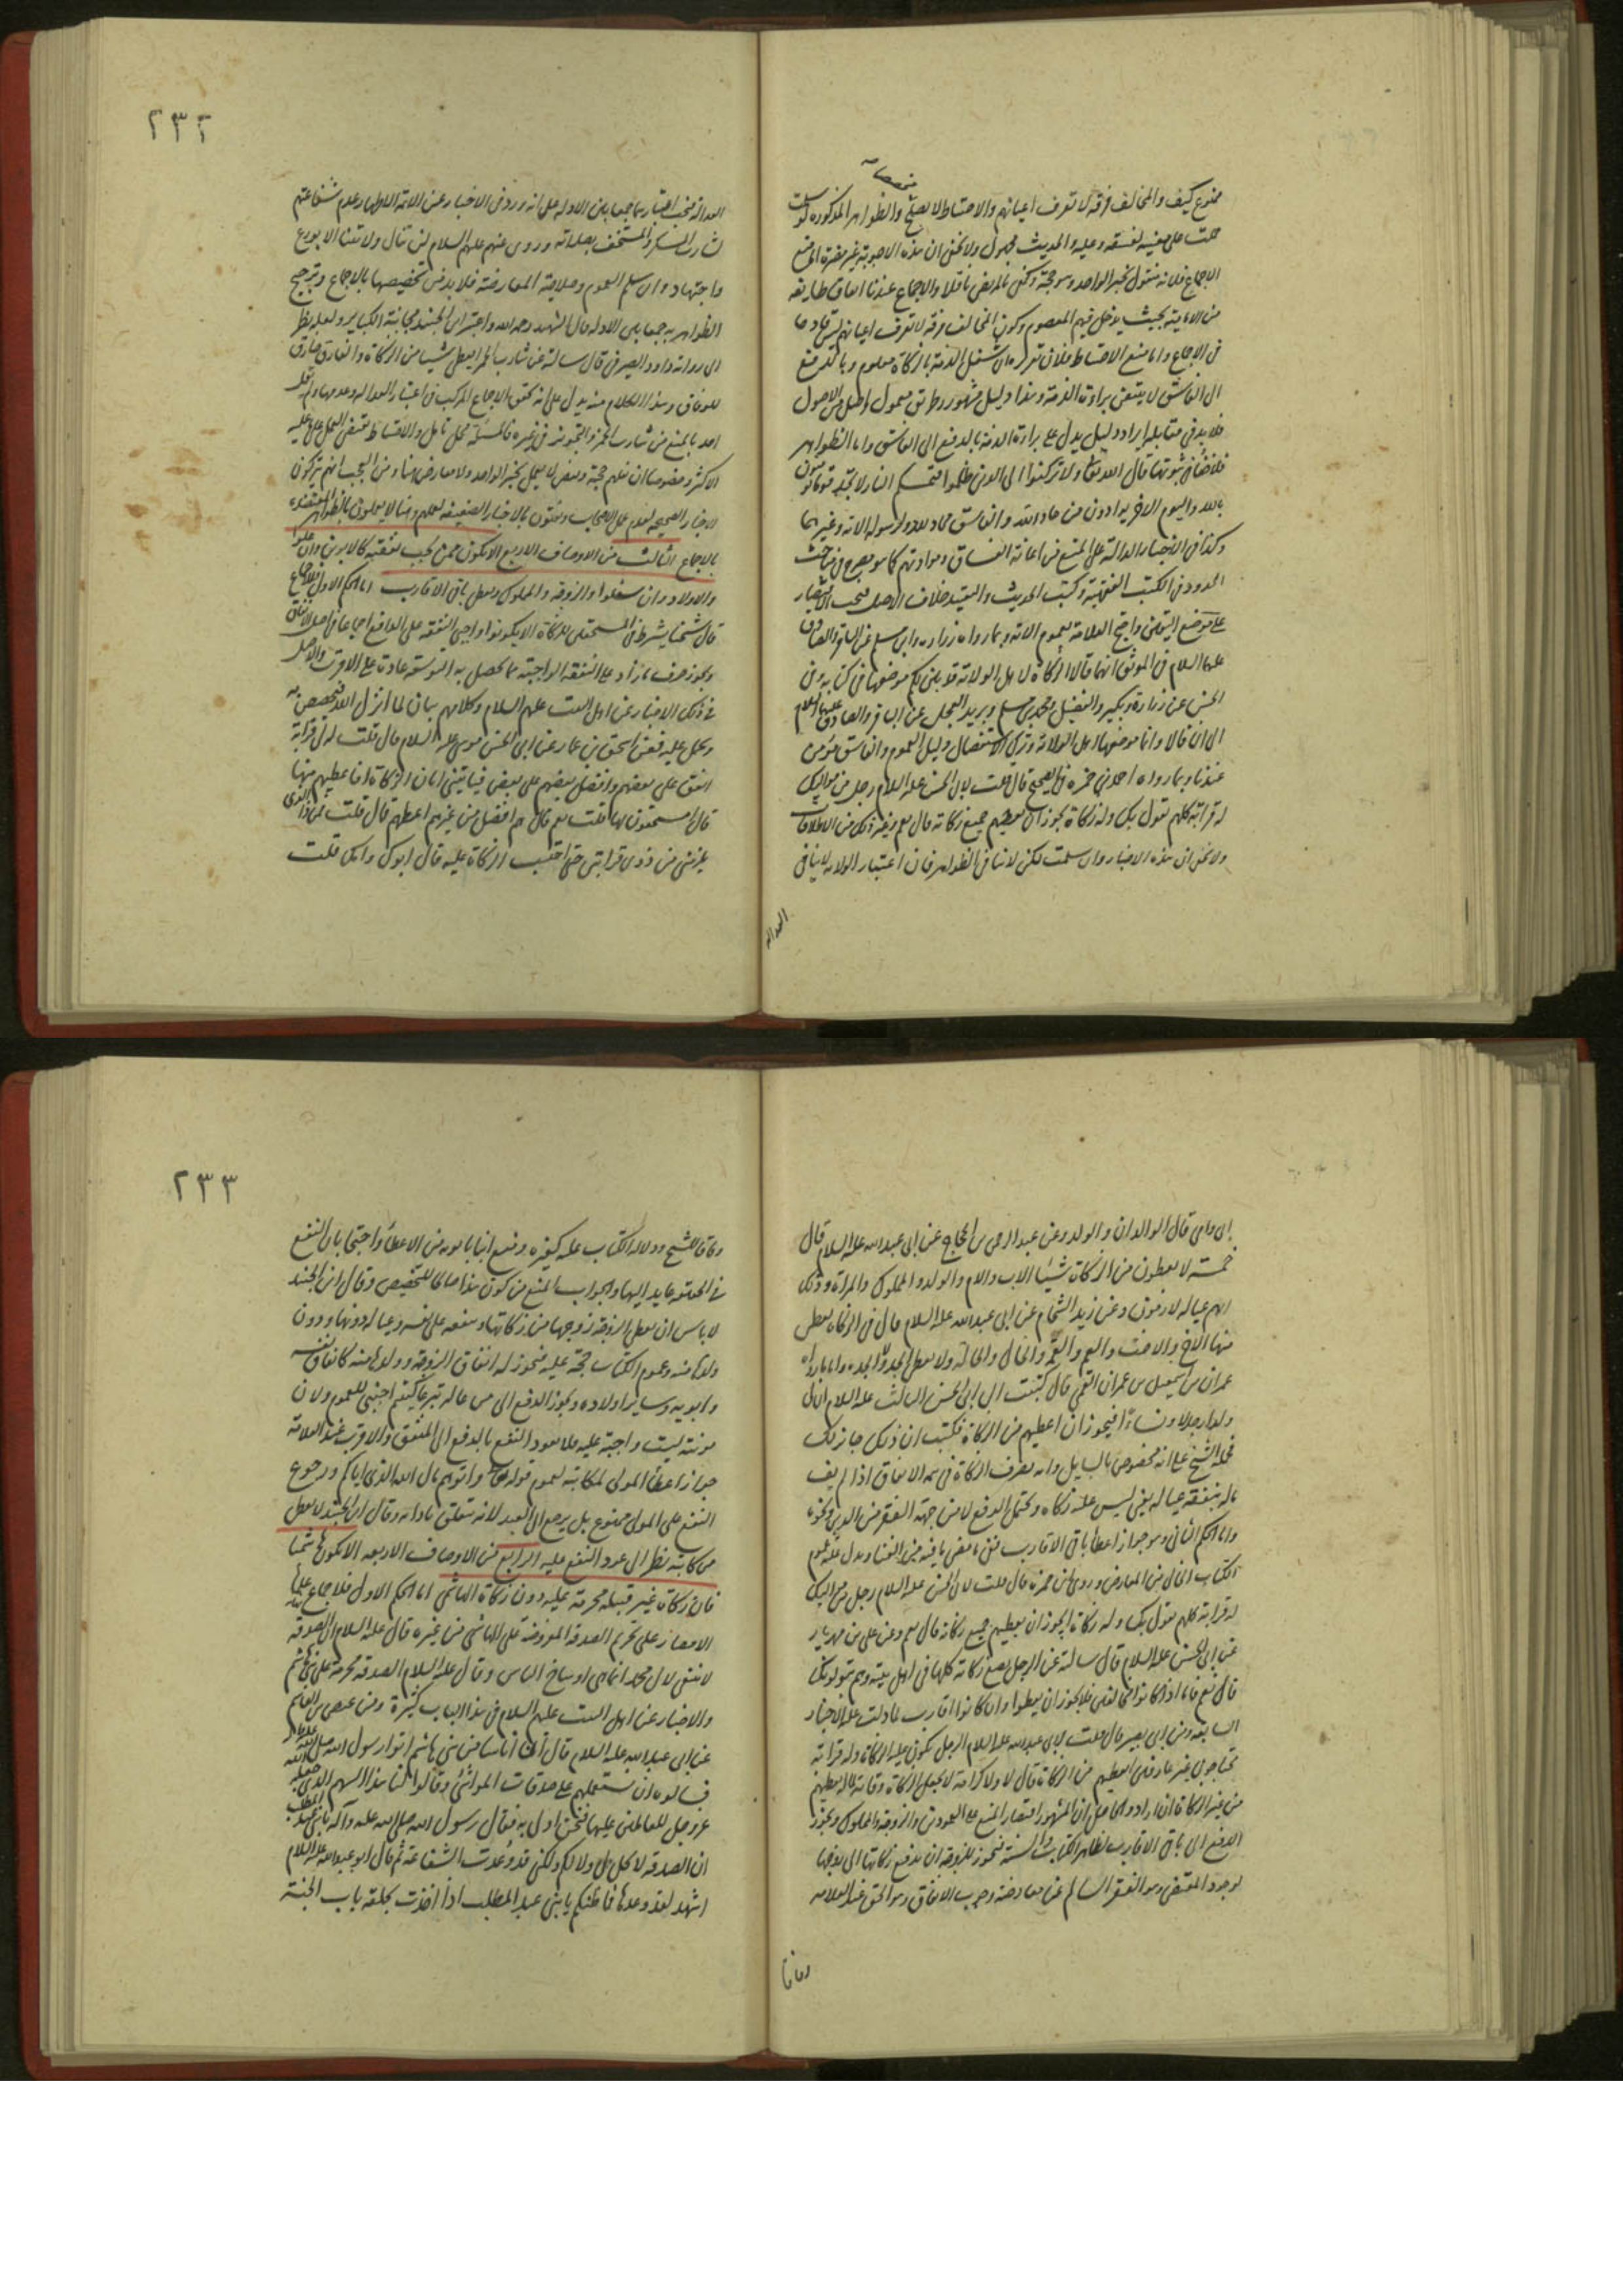 ممنوع كيف والمخالف فرقة لا تعرف اعيانهم والاحتياط لا يصلح والظواهر المذكورة لو سلمت
حملت على معينه لفسقه وعليه والحديث مجهول ولا يخفى ان هذه الاجوبة غير مضرة اما منع
الاجماع فلانه منقول بخبر الواحد وهو حجة وكفى بالمرتضى ناقلا والاجماع عندنا اتفاق طايفة
من الامامية بحيث يدخل فيهم المعصوم وكون المخالف فرقة لا تعرف اعيانهم ليس قادحا
في الاجماع واما منع الاحتياط فلان تقريره ان شغل الذمة بالزكاة معلوم وبالدفع
الى الفاسق لا يتيقن براءة الذمة وهذا دليل مشهور وطريق معمول واصل من الاصول
فلا بد في مقابله ايراد دليل يدل على براءة الذمة بالدفع الى الفاسق واما الظواهر
فلا خفاء في ثبوتها قال الله تعالى ولا تركنوا الى الذين ظلموا فتمسكم النار لا تجد قوما يؤمنون
بالله واليوم الاخر يوادون من حاد الله والفاسق محاد لله ولرسوله الاية وغيرهما
وكذا في الاخبار الدالة على المنع من اعانة الفساق وموادتهم كما هو مصرح في مباحث
الحدود في الكتب الفقهية وكتب الحديث والتقييد خلاف الاصل فيجب الاقتصار
على موضع اليقين واحتج العلامة بعموم الاية وبما رواه زرارة وابن مسلم عن الباقر والصادق
عليهما السلام في الموثق انهما قالا الزكاة لاهل الولاية قد بين لكم موضعها في كتابه وفي
الحسن عن زرارة وبكير والفضيل ومحمد بن مسلم وبريد العجلي عن الباقر والصادق عليهما السلام
الى ان قالا وانما موضعها اهل الولاية وترك الاستفصال دليل العموم والفاسق مؤمن
عندنا وبما رواه احمد بن حمزة في الصحيح قال قلت لابي الحسن عليه السلام رجل من مواليك
له قرابة كلهم يقول بك وله زكاة يجوز ان يعطيهم جميع زكاته قال نعم وغير ذلك من الاطلاقات
ولا يخفى ان هذه الاخبار وان سلمت لكن لا تنافي الظواهر فان اعتبار الولاية لا ينافي
العدالة
٢٣٢
العدالة فيجب اعتبارها جمعا بين الادلة على انه ورد في الاخبار عن الائمة الاطهار عدم شفاعتهم
لشارب المسكر والمستخف بصلاته وروي عنهم عليهم السلام لن تنال ولايتنا الا بورع
واجتهاد وان سلم العموم وصلاحية المعارضة فلا بد من تخصيصها بالاجماع وترجيح
الظواهر به جمعا بين الادلة قال الشهيد رحمه الله واعتبر ابن الجنيد مجانبة الكباير ولعله نظر
الى رواية داود الصيرفي قال سالته عن شارب الخمر ايعطى شيئا من الزكاة قال لا
للوفاق وهذا الكلام منه يدل على انه تحقق الاجماع المركب في اعتبار العدالة وعدمها ولم يقل
احد بالمنع من شارب الخمر والتجويز في غيره فالمسئلة محل تامل والاحتياط يقتضي العمل بما عليه
الاكثر وخصوصا ان نقلهم حجة وبعض لا يعمل بخبر الواحد ولا معارض هنا ومن العجب انهم يتركون
الاخبار الصحيحة لعدم عمل الاصحاب ويفتون بالاخبار الضعيفة لعملهم وهنا لا يعملون بالظواهر المعتضدة
بالاجماع الثالث من الاوصاف الاربع ان لا يكون ممن يجب نفقته كالابوين وان علوا
والاولاد وان سفلوا والزوجة والمملوك ويعطى باقي الاقارب اما الحكم الاول فبالاجماع
قال شيخنا يشترط في المستحقين للزكاة ان لا يكونوا واجبي النفقة على الدافع اجماعا في اصل الانفاق
ويجوز صرف ما زاد على النفقة الواجبة مما يحصل به التوسعة عادة على الاقرب والاصل
في ذلك الاخبار عن اهل البيت عليهم السلام وكلامهم بيان لما انزل الله فيخصص به
ويحمل عليه فعن اسحق بن عمار عن ابي الحسن موسى عليه السلام قال قلت له لي قرابة
انفق على بعضهم وافضل بعضهم على بعض فياتيني ابان الزكاة افاعطيهم منها
قال مستحقون لها قلت نعم قال هم افضل من غيرهم اعطهم قال قلت فمن ذا الذي
يلزمني من ذوي قرابتي حتى احتسب الزكاة عليه قال ابوك وامك قلت
ابي وامي قال الوالدان والولد وعن عبد الرحمن بن الحجاج عن ابي عبد الله عليه السلام قال
خمسة لا يعطون من الزكاة شيئا الاب والام والولد والمملوك والمراة وذلك
انهم عياله لازمون له وعن زيد الشحام عن ابي عبد الله عليه السلام قال في الزكاة يعطى
منها الاخ والاخت والعم والعمة والخال والخالة ولا يعطى الجد ولا الجدة واما ما رواه
عمران بن اسمعيل بن عمران القمي قال كتبت الى ابي الحسن الثالث عليه السلام ان لي
ولدا رجالا ونساء افيجوز ان اعطيهم من الزكاة فكتب ان ذلك جايز لك
فحمله الشيخ على انه مخصوص بالسايل وانه يصرف الزكاة في تتمة الانفاق اذا لم يف
ماله بنفقة عياله يعني ليس عليه زكاة ويحتمل الدفع لا من جهة الفقر من الدين ونحوه
واما الحكم الثاني وهو جواز اعطاء باقي الاقارب فقد مضى ما فيه من الغنا ويدل عليه عموم
الكتاب الخالي من المعارض وروى ابن حمزة قال قلت لابي الحسن عليه السلام رجل من مواليك
له قرابة كلهم يقول بك وله زكاة ايجوز ان يعطيهم جميع زكاته قال نعم وعن علي بن مهزيار
عن ابي الحسن عليه السلام قال سالته عن الرجل يضع زكاته كلها في اهل بيته وهم يتولونك
قال نعم فاما اذا كانوا مخالفين فلا يجوز ان يعطوا وان كانوا اقارب لما دلت عليه الاخبار
السابقة وعن ابي بصير قال قلت لابي عبد الله عليه السلام الرجل يكون عليه الزكاة وله قرابة
محتاجون غير عارفين ايعطيهم من الزكاة قال لا ولا كرامة لا يجعل الزكاة وقاية لماله يعطيهم
من غير الزكاة ان اراد والحاصل ان المشهور اقتصار المنع على العمودين والزوجة والمملوك ويجوز
الدفع الى باقي الاقارب لظاهر الكتاب والسنة فيجوز للزوجة ان تدفع زكاتها الى زوجها
لوجود المقتضي وهو الفقر السالم عن معارضة وجوب الانفاق وهو الحق عند العلامة
وفاقا
٢٣٣
وفاقا للشيخ ودلالة الكتاب عليه كغيره ومنع ابنا بابويه من الاعطاء واحتجا بان النفع
في الحقيقة عايد اليها والجواب المنع من كون هذا صالحا للتخصيص وقال ابن الجنيد
لا باس ان يعطي الزوجة زوجها من زكاتها وينفقه على نفسه وعياله دونها ودون
ولدها منه وعموم الكتاب حجة عليه فيجوز له انفاق الزوجة وولدها منه كانفاق نفسه
وابويه وساير اولاده ويجوز الدفع الى من عاله تبرعا كيتيم اجنبي للعموم ولان
مونته ليست واجبة عليه فلا يعود النفع بالدفع الى المنفق والاقرب عند العلامة
جواز اعطاء المولى لمكاتبه لعموم قوله تعالى واتوهم من مال الله الذي اتاكم ورجوع
النفع على المولى ممنوع بل يرجع الى العبد لانه يتعلق بادائه وقال ابن الجنيد لا يعطى
من كاتبه نظرا الى عود النفع عليه الرابع من الاوصاف الاربعة ان لا يكون هاشميا
فان زكاة غير قبيله محرمة عليه دون زكاة الهاشمي اما الحكم الاول فلاجماع علماء
الامصار على تحريم الصدقة المفروضة على الهاشمي من غيره قال عليه السلام ان الصدقة
لا تنبغي لآل محمد انما هي اوساخ الناس وقال عليه السلام الصدقة محرمة على بني هاشم
والاخبار عن اهل البيت عليهم السلام في هذا الباب كثيرة وعن عيص بن القاسم
عن ابي عبد الله عليه السلام قال ان اناسا من بني هاشم اتوا رسول الله صلى الله عليه وآله
فسالوه ان يستعملهم على صدقات المواشي وقالوا لنا هذا السهم الذي جعله الله
عز وجل للعاملين عليها فنحن اولى به فقال رسول الله صلى الله عليه وآله يا بني عبد المطلب
ان الصدقة لا تحل لي ولا لكم ولكني قد وعدت الشفاعة ثم قال ابو عبد الله عليه السلام
اشهد لقد وعدها فما ظنكم يا بني عبد المطلب اذا اخذت بحلقة باب الجنة